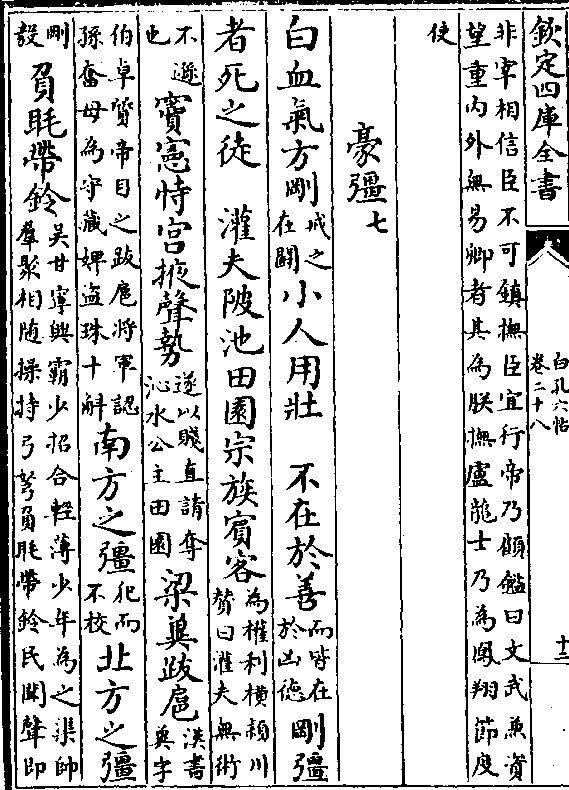 欽定四庫全書
白孔六帖
卷二十八
十三
非宰相信臣不可鎮撫臣宜行帝乃顧鍳曰文武兼資
望重内外無易卿者其為朕撫盧龍士乃為鳳翔節度
使
豪彊七
白血氣方剛
戒之
在鬬
小人用壯 不在於善
而皆在
於凶徳
剛彊
者死之徒 灌夫陂池田園宗族賓客
為權利橫潁川
贊曰灌夫無術
不遜
也
竇憲恃宫掖聲勢
遂以賤直請奪
沁水公主田園
梁冀跋扈
漢書
冀字
伯卓質帝目之跋扈將軍認
孫奮母為守藏婢盗珠十斛
南方之彊
犯而
不校
北方之彊
剛
毅
負眊帶鈴
吴甘寧興霸少招合輕薄少年為之渠帥
羣聚相随操持弓弩負眊帶鈴民聞聲即